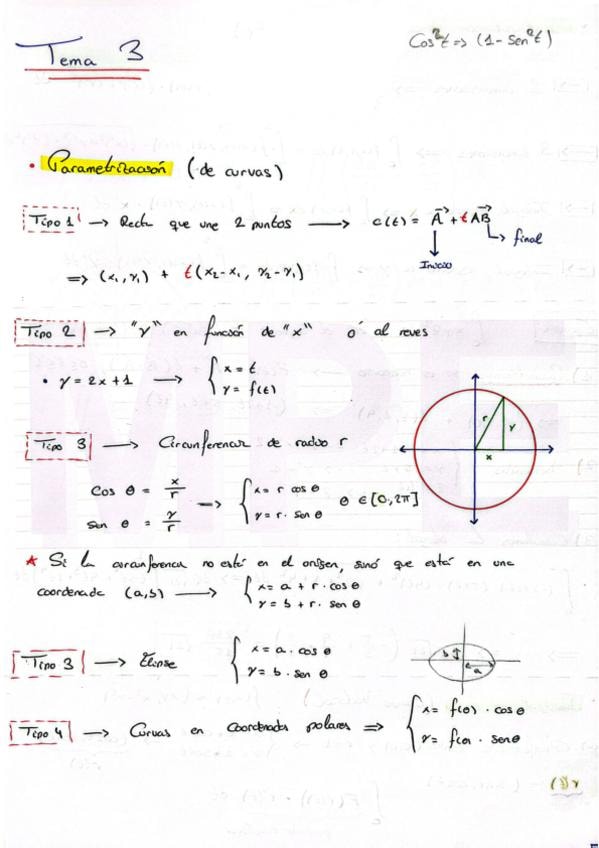 Cos²t => (1 - Sen²t)
Tema 3
• Parametrización (de curvas)
Tipo 1 → Recta que une 2 puntos → c(t) = A + t AB
Inicio
final
=> (x₁, y₁) + t(x₂-x₁, y₂-y₁)
Tipo 2 → "y" en función de "x" ó al reves
• y = 2x+1 → { x = t
y = f(t)
Tipo 3 → Circunferencia de radio r
r y
x
cos θ = x/r → { x = r cos θ
sen θ = y/r y = r · sen θ θ ∈ [0, 2π]
* Si la circunferencia no esté en el origen, sinó que está en una
coordenada (a,b) → { x = a + r · cos θ
y = b + r · sen θ
Tipo 3 → Elipse { x = a · cos θ
y = b · sen θ
b
a
Tipo 4 → Curvas en coordenadas polares => { x = f(θ) · cos θ
y = f(θ) · sen θ
MPE